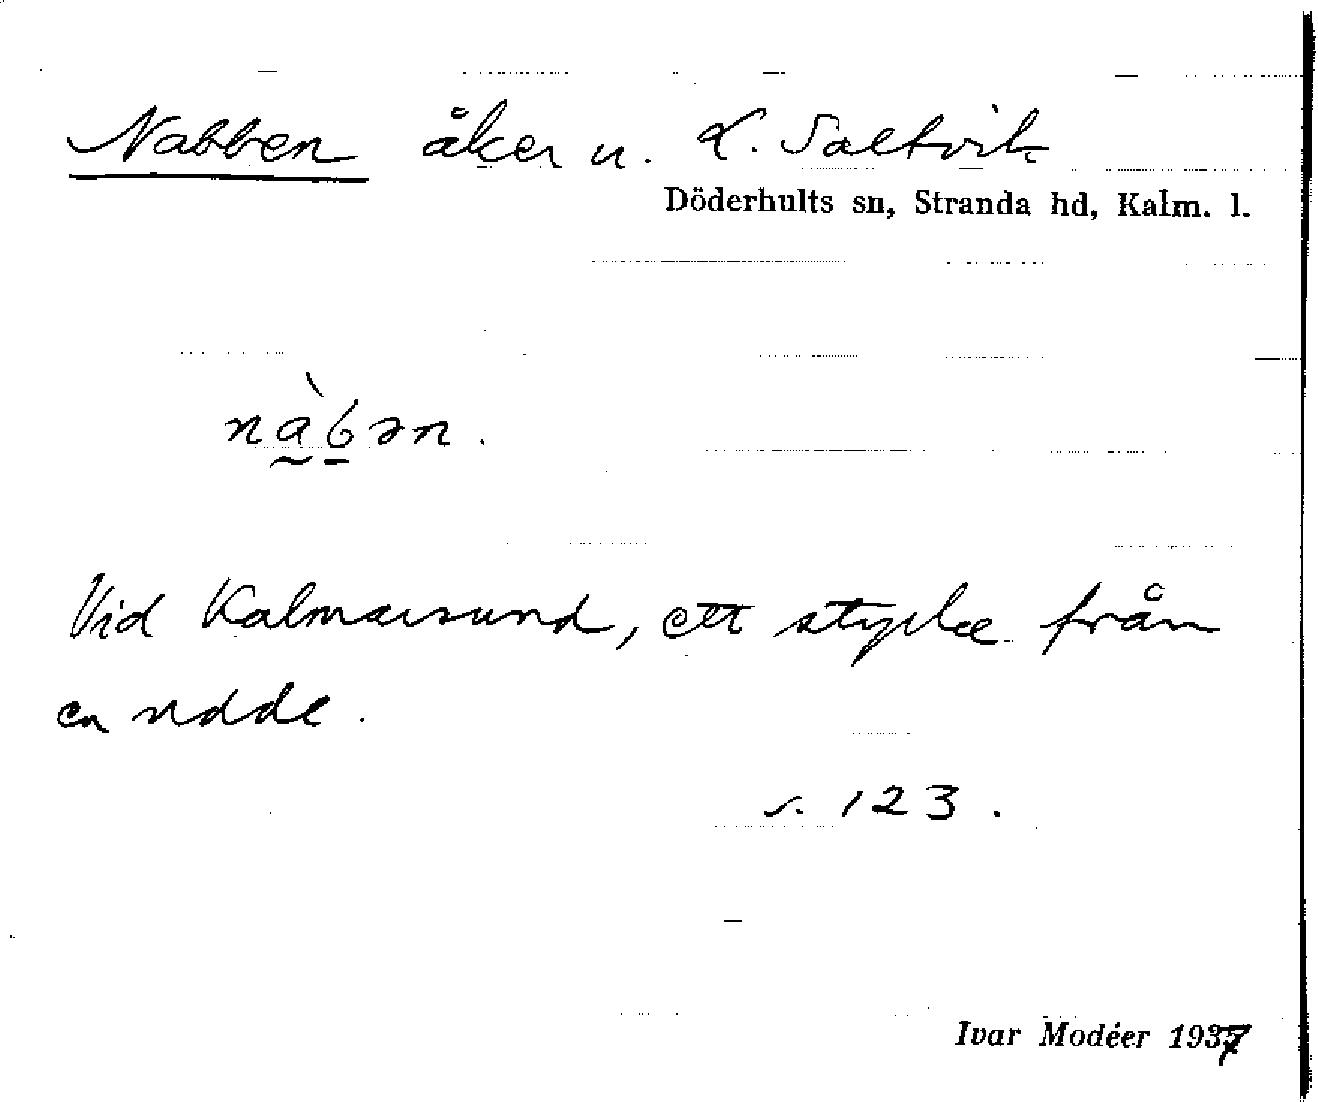 Nabben åker u. L. Saltvik
Döderhults sn, Stranda hd, Kalm. l.
nàbən.
Vid Kalmarsund, ett stycke från
en udde.
s. 123.
Ivar Modéer 1937